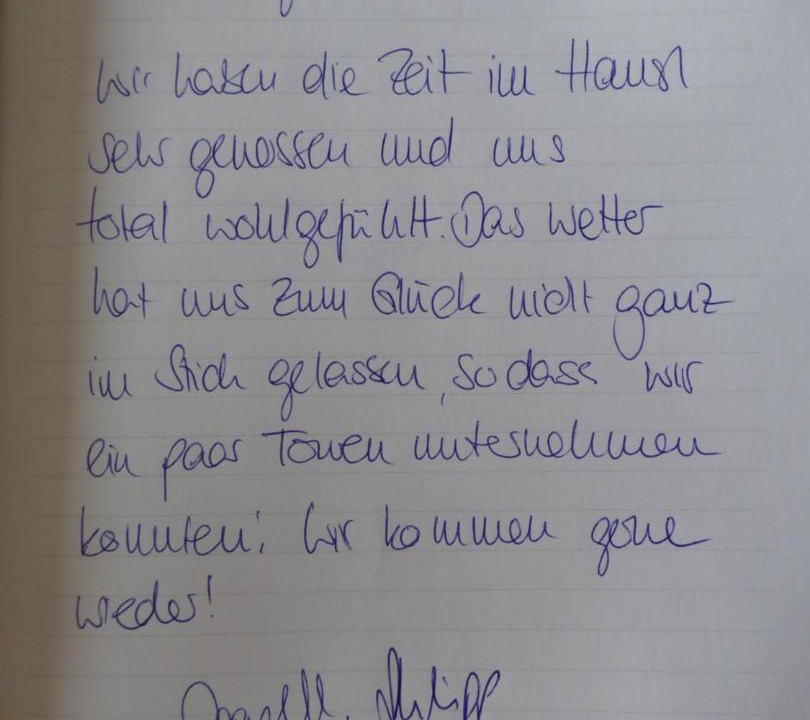 Wir haben die Zeit im Hausl
sehr genossen und uns
total wohlgefühlt. Das Wetter
hat uns zum Glück nicht ganz
im Stich gelassen, sodass wir
ein paar Touren unternehmen
konnten! Wir kommen gerne
wieder!
Philipp